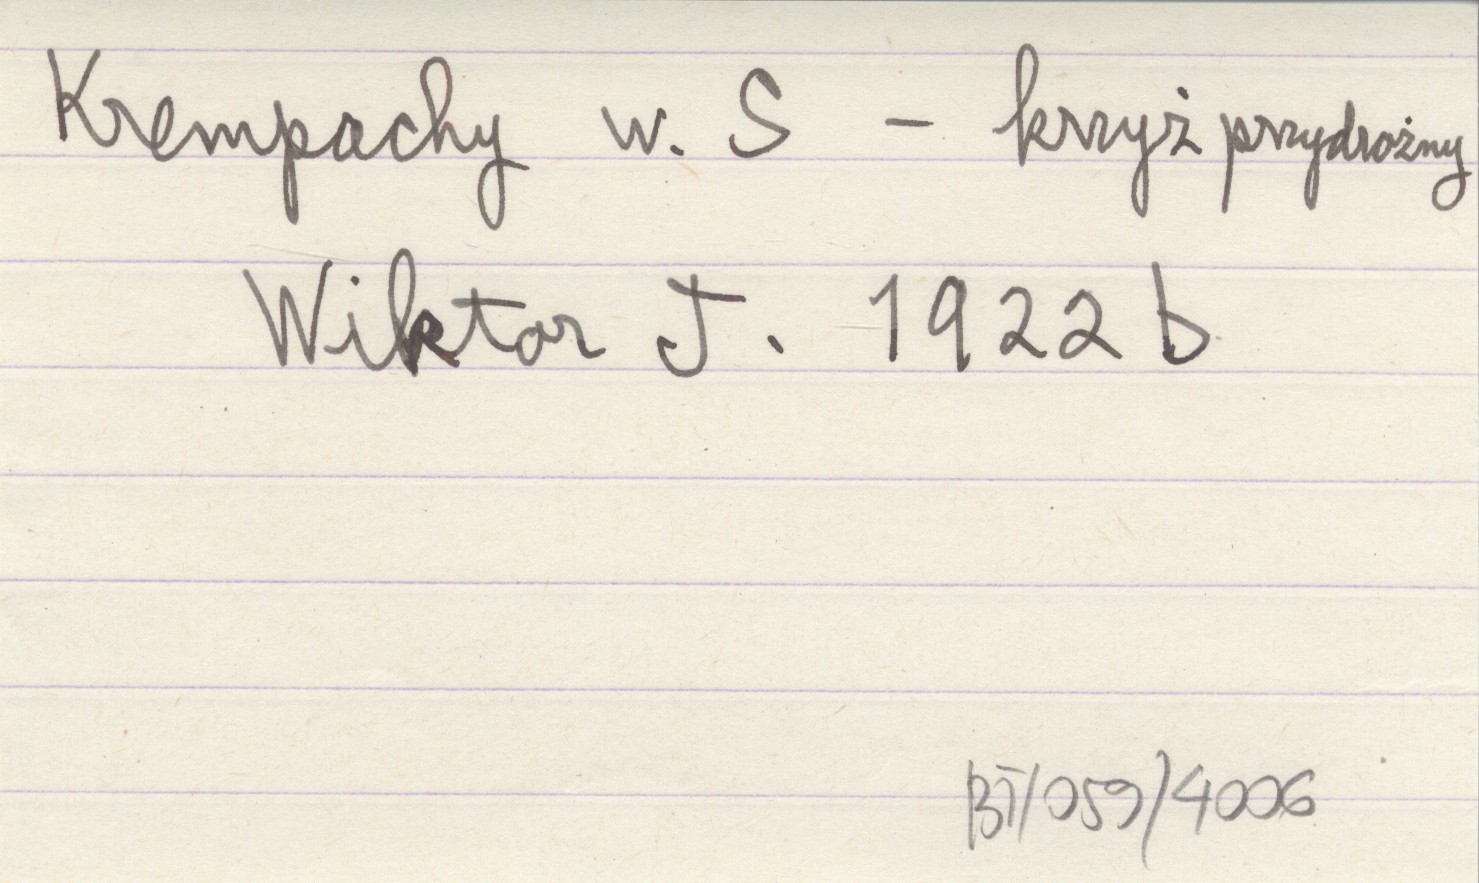 Krempachy w. S - krzyż przydrożny
Wiktor J. 1922 b
BT/059/4006